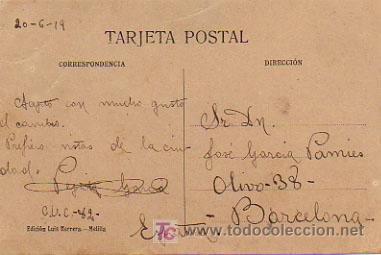 20-6-19
TARJETA POSTAL
CORRESPONDENCIA
DIRECCIÓN
Acepto con mucho gusto
el cambio.
Prefiero vistas de la ciu
dad.
C.U.C.-42-
Sr. Dn.
José García Pamies
Olivo-38-
Barcelona-
Edición Luis Barrera.-Melilla
TC todocoleccion.net